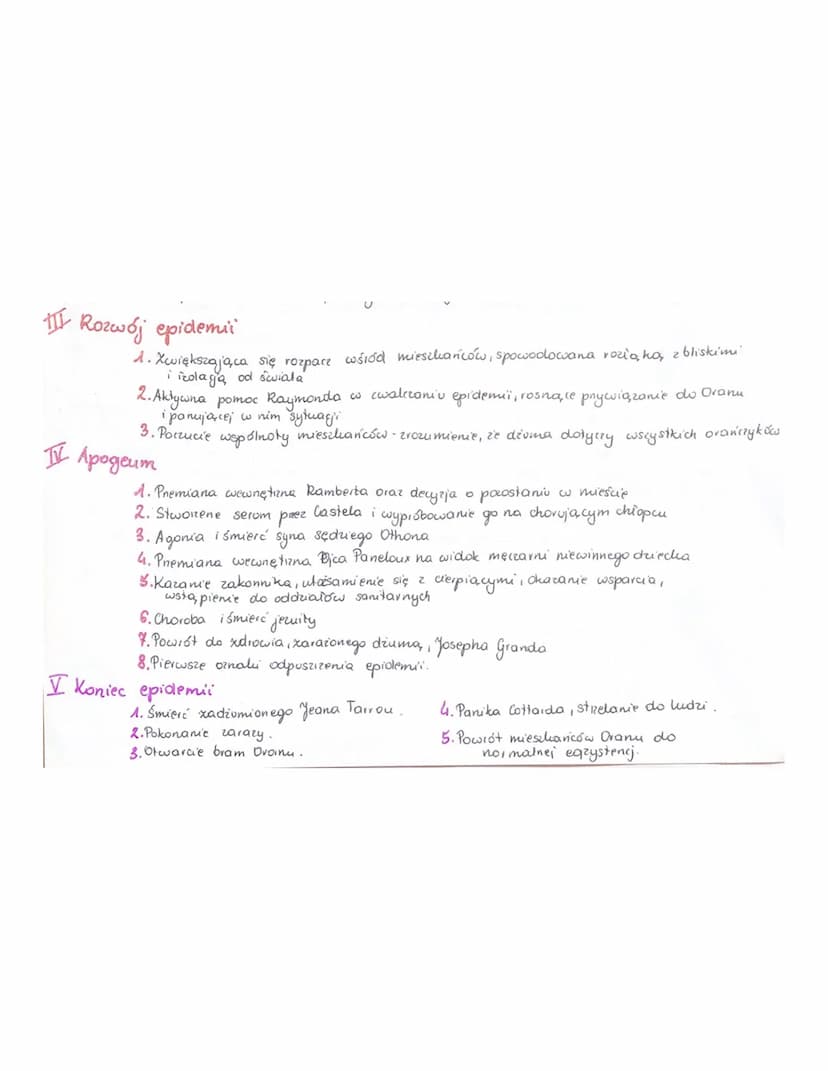 III Rozwój epidemii
1. Zwiększająca się rozpacz wśród mieszkańców, spowodowana rozłąką z bliskimi
i izolacją od świata
2. Aktywna pomoc Raymonda w zwalczaniu epidemii, rosnące przywiązanie do Oranu
i panującej w nim sytuacji
3. Poczucie wspólnoty mieszkańców - zrozumienie, że dżuma dotyczy wszystkich orańczyków
IV Apogeum
1. Przemiana wewnętrzna Ramberta oraz decyzja o pozostaniu w mieście
2. Stworzenie serum przez Castela i wypróbowanie go na chorującym chłopcu
3. Agonia i śmierć syna sędziego Othona
4. Przemiana wewnętrzna Ojca Paneloux na widok męczarni niewinnego dziecka
5. Kazanie zakonnika, utożsamienie się z cierpiącymi, okazanie wsparcia,
wstąpienie do oddziałów sanitarnych
6. Choroba i śmierć jezuity
7. Powrót do zdrowia, zarażonego dżumą, Josepha Granda
8. Pierwsze oznaki odpuszczenia epidemii.
V Koniec epidemii
1. Śmierć zadżumionego Jeana Tarrou.
2. Pokonanie zarazy.
3. Otwarcie bram Oranu.
4. Panika Cottarda, strzelanie do ludzi.
5. Powrót mieszkańców Oranu do
normalnej egzystencj.